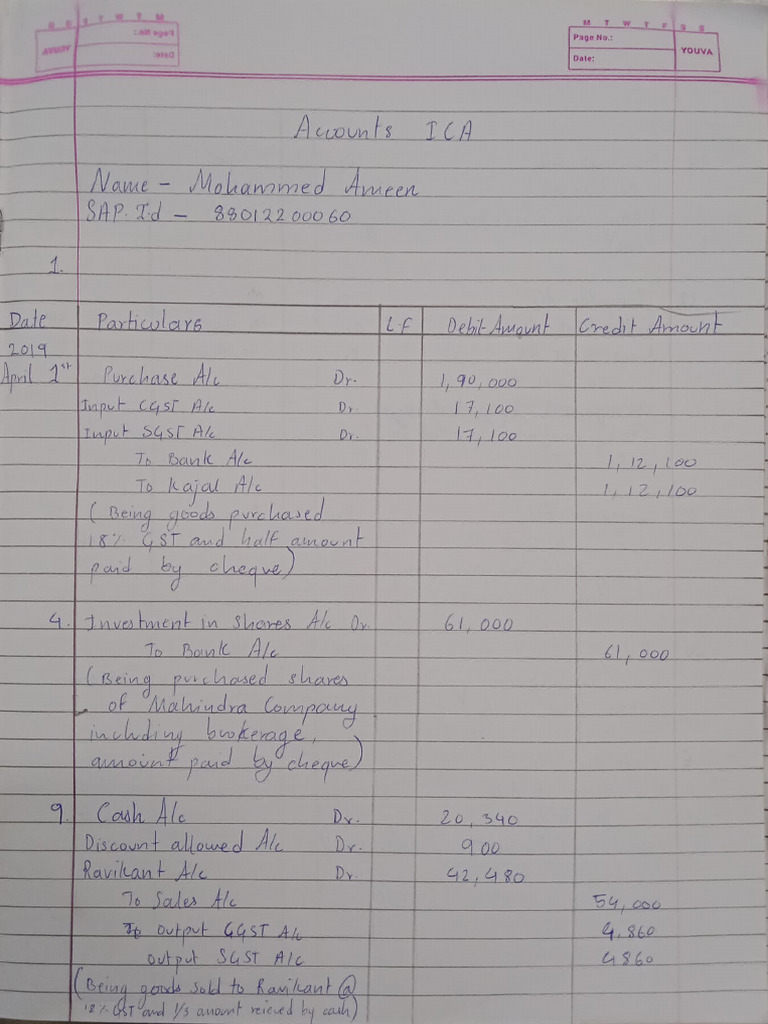 M T W T F S S
Page No.:
Date:
YOUVA
Accounts ICA
Name - Mohammed Ameen
SAP. Id - 88012200060
1.
Date Particulars L F Debit Amount Credit Amount
2019
April 1st Purchase A/c Dr. 1,90,000
Input CGST A/c Dr. 17,100
Input SGST A/c Dr. 17,100
To Bank A/c 1,12,100
To Kajal A/c 1,12,100
(Being goods purchased
18% GST and half amount
paid by cheque)
4. Investment in shares A/c Dr. 61,000
To Bank A/c 61,000
(Being purchased shares
of Mahindra Company
including brokerage,
amount paid by cheque)
9. Cash A/c Dr. 20,340
Discount allowed A/c Dr. 900
Ravikant A/c Dr. 42,480
To Sales A/c 54,000
To output CGST A/c 4,860
output SGST A/c 4860
(Being goods sold to Ravikant @
18% GST and 1/3 amount recieved by cash)